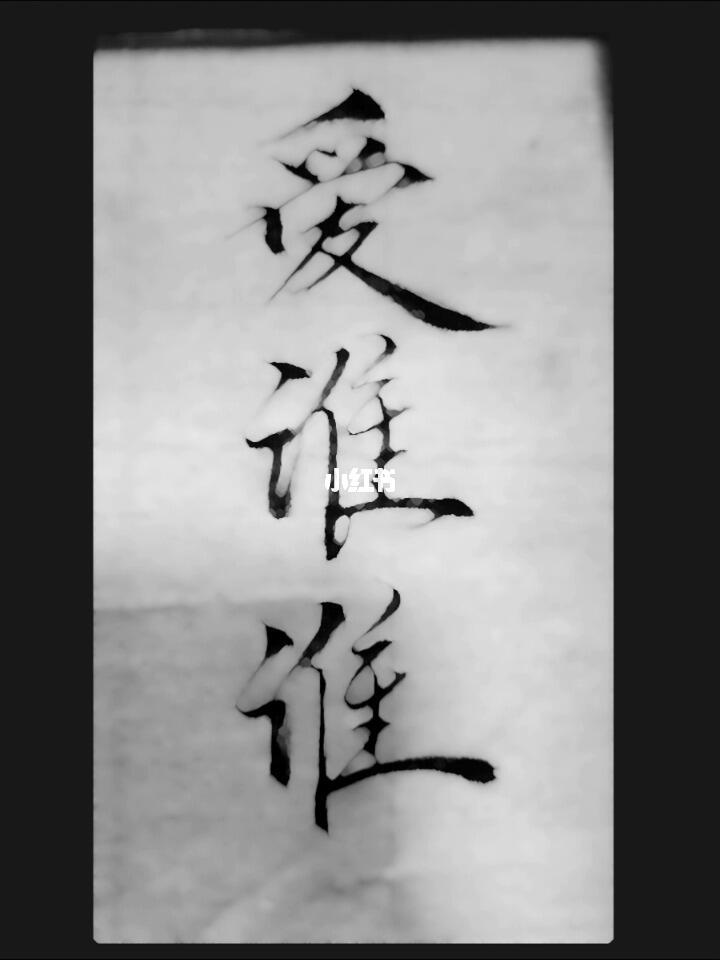 爱谁谁
小红书